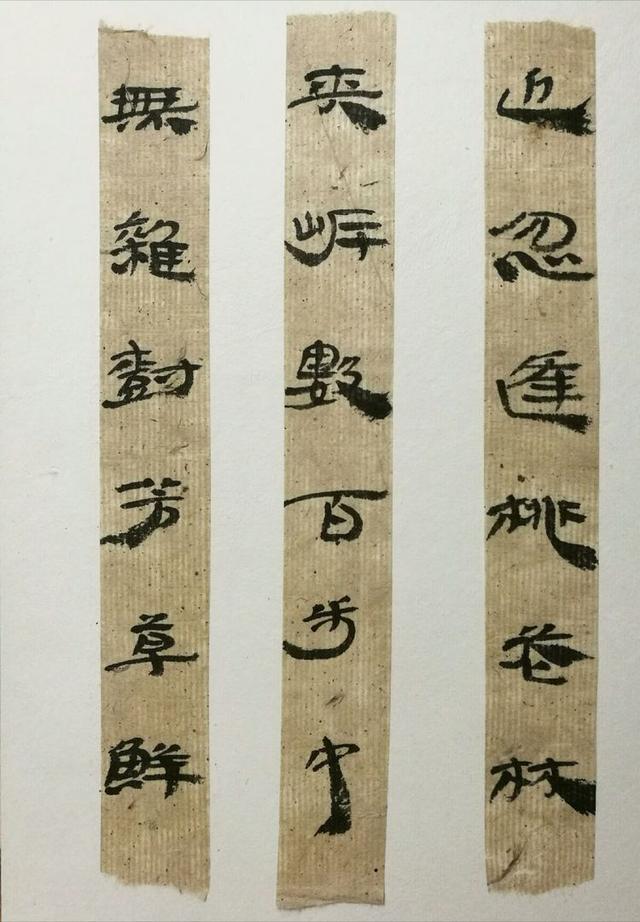 近忽逢桃花林
夾岸數百步中
無雜樹芳草鮮